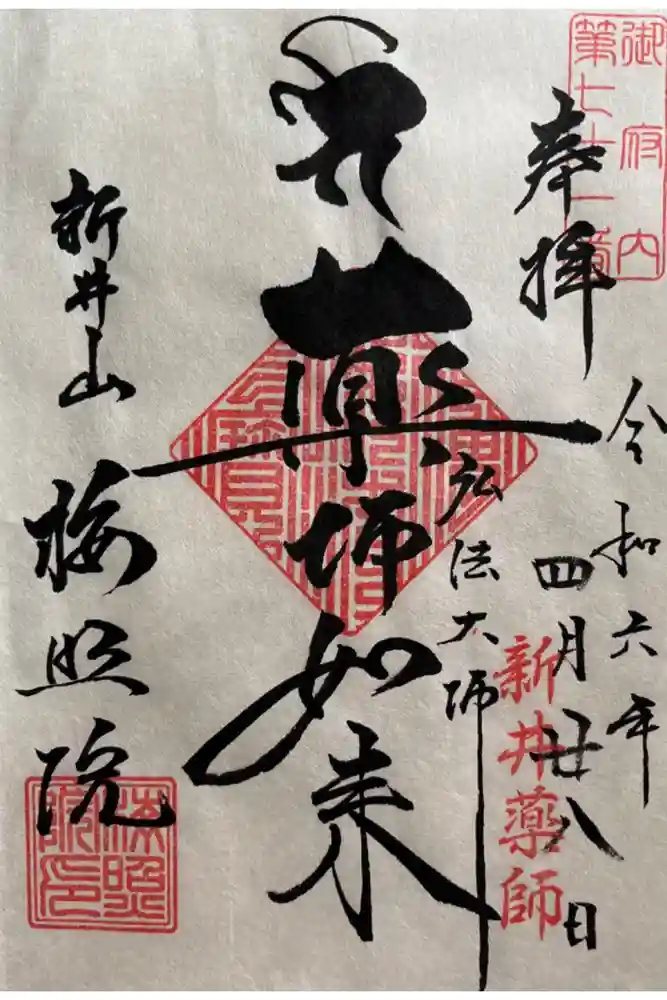 御府内
第七十一番
奉拝
令和六年
四月廿八日
新井薬師
薬師如来
弘法大師
新井山
梅照院
梅照院印